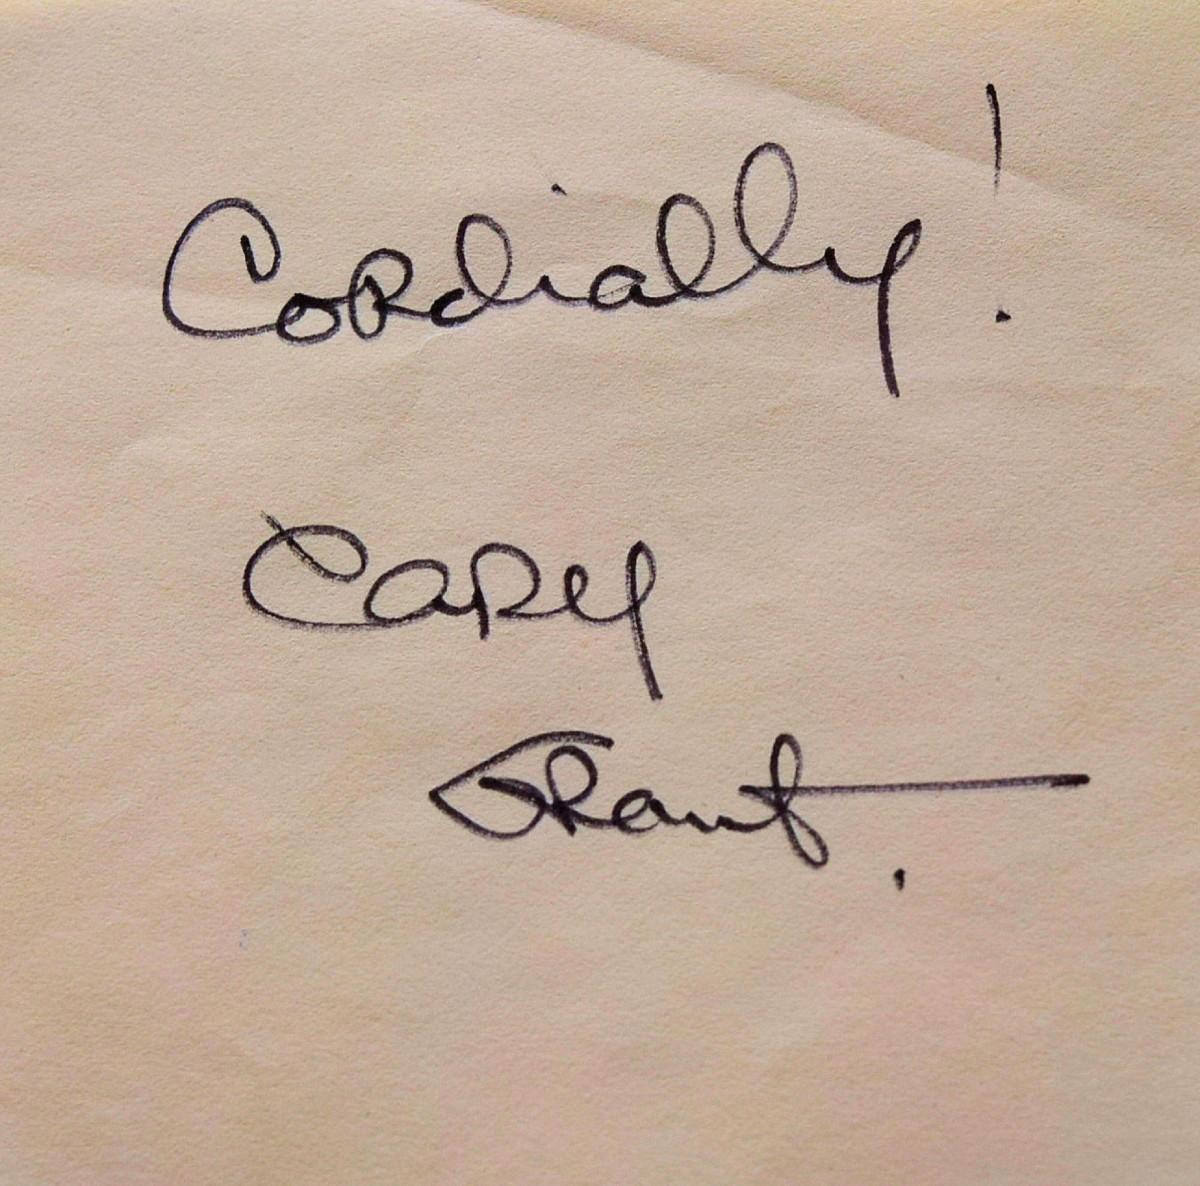 Cordially!
Cary
Grant.